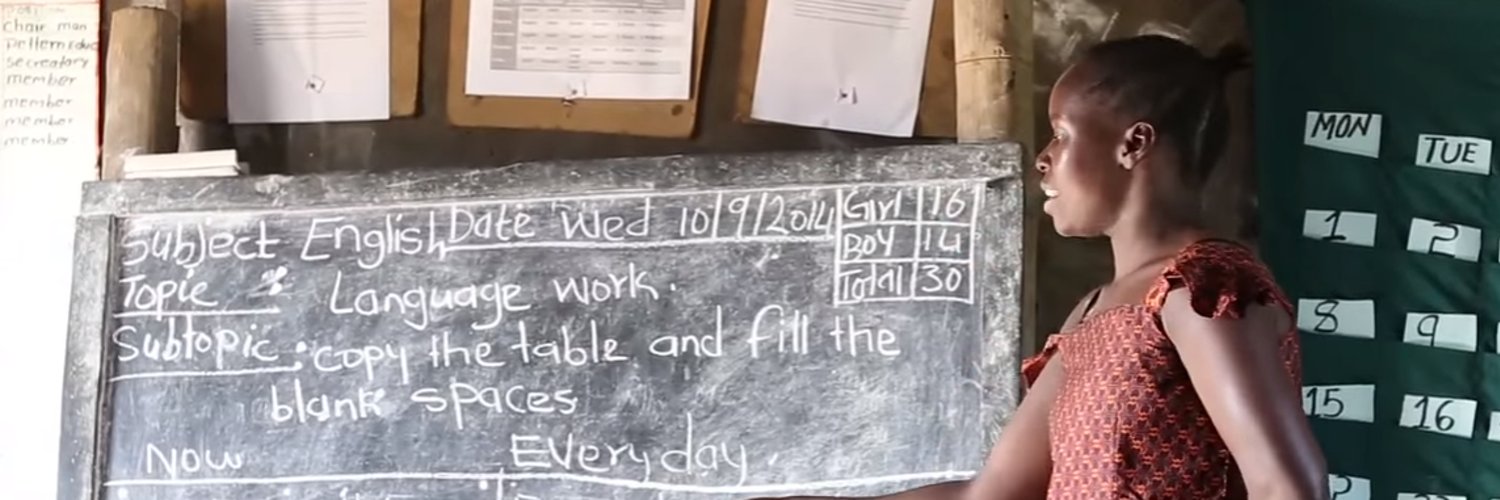 Chair man
secreatary
member
member
member
member
Subject English Date Wed 10/9/2014
Girl 16
Boy 14
Total 30
Topic : Language work.
Subtopic : copy the table and fill the
blank spaces
Now Every day.
MON TUE
1 2
8 9
15 16